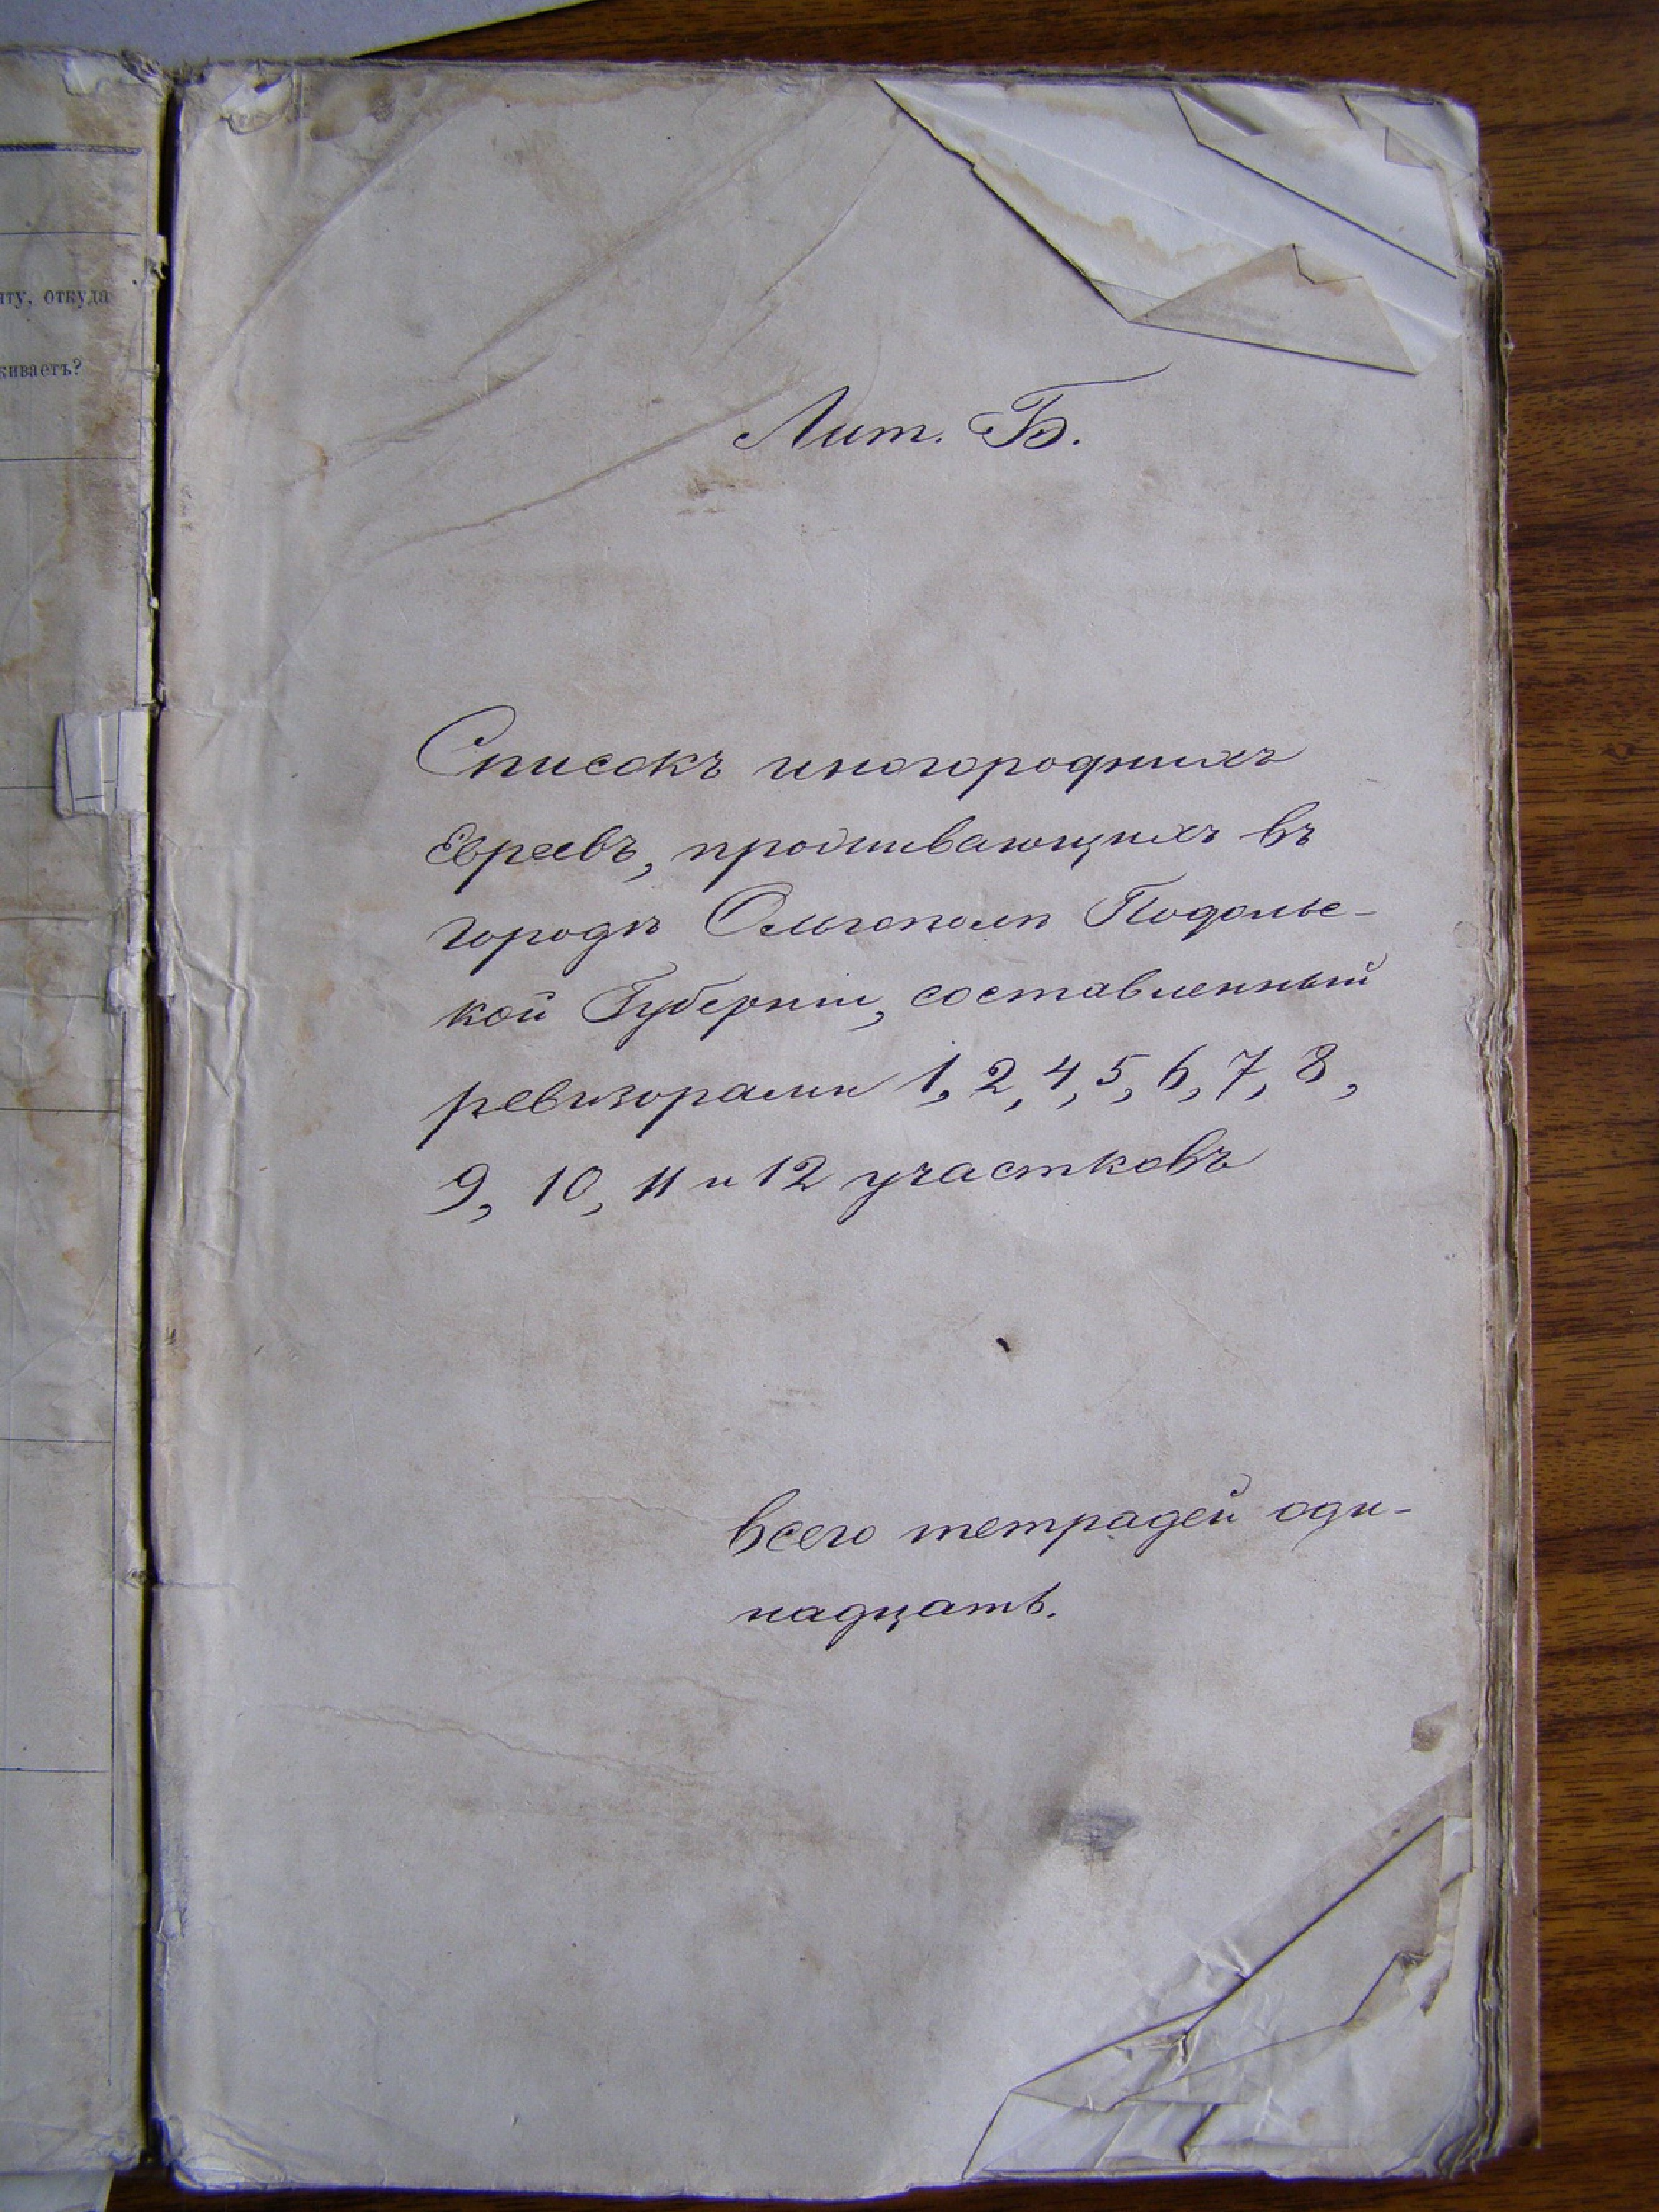 откуда
Лит. Б.
Списокъ иногороднихъ
Евреевъ, проживающихъ въ
городѣ Ольгополѣ Подольс-
кой Губерніи, составленный
ревизорами 1, 2, 4, 5, 6, 7, 8,
9, 10, 11 и 12 участковъ
всего тетрадей оди-
надцать.